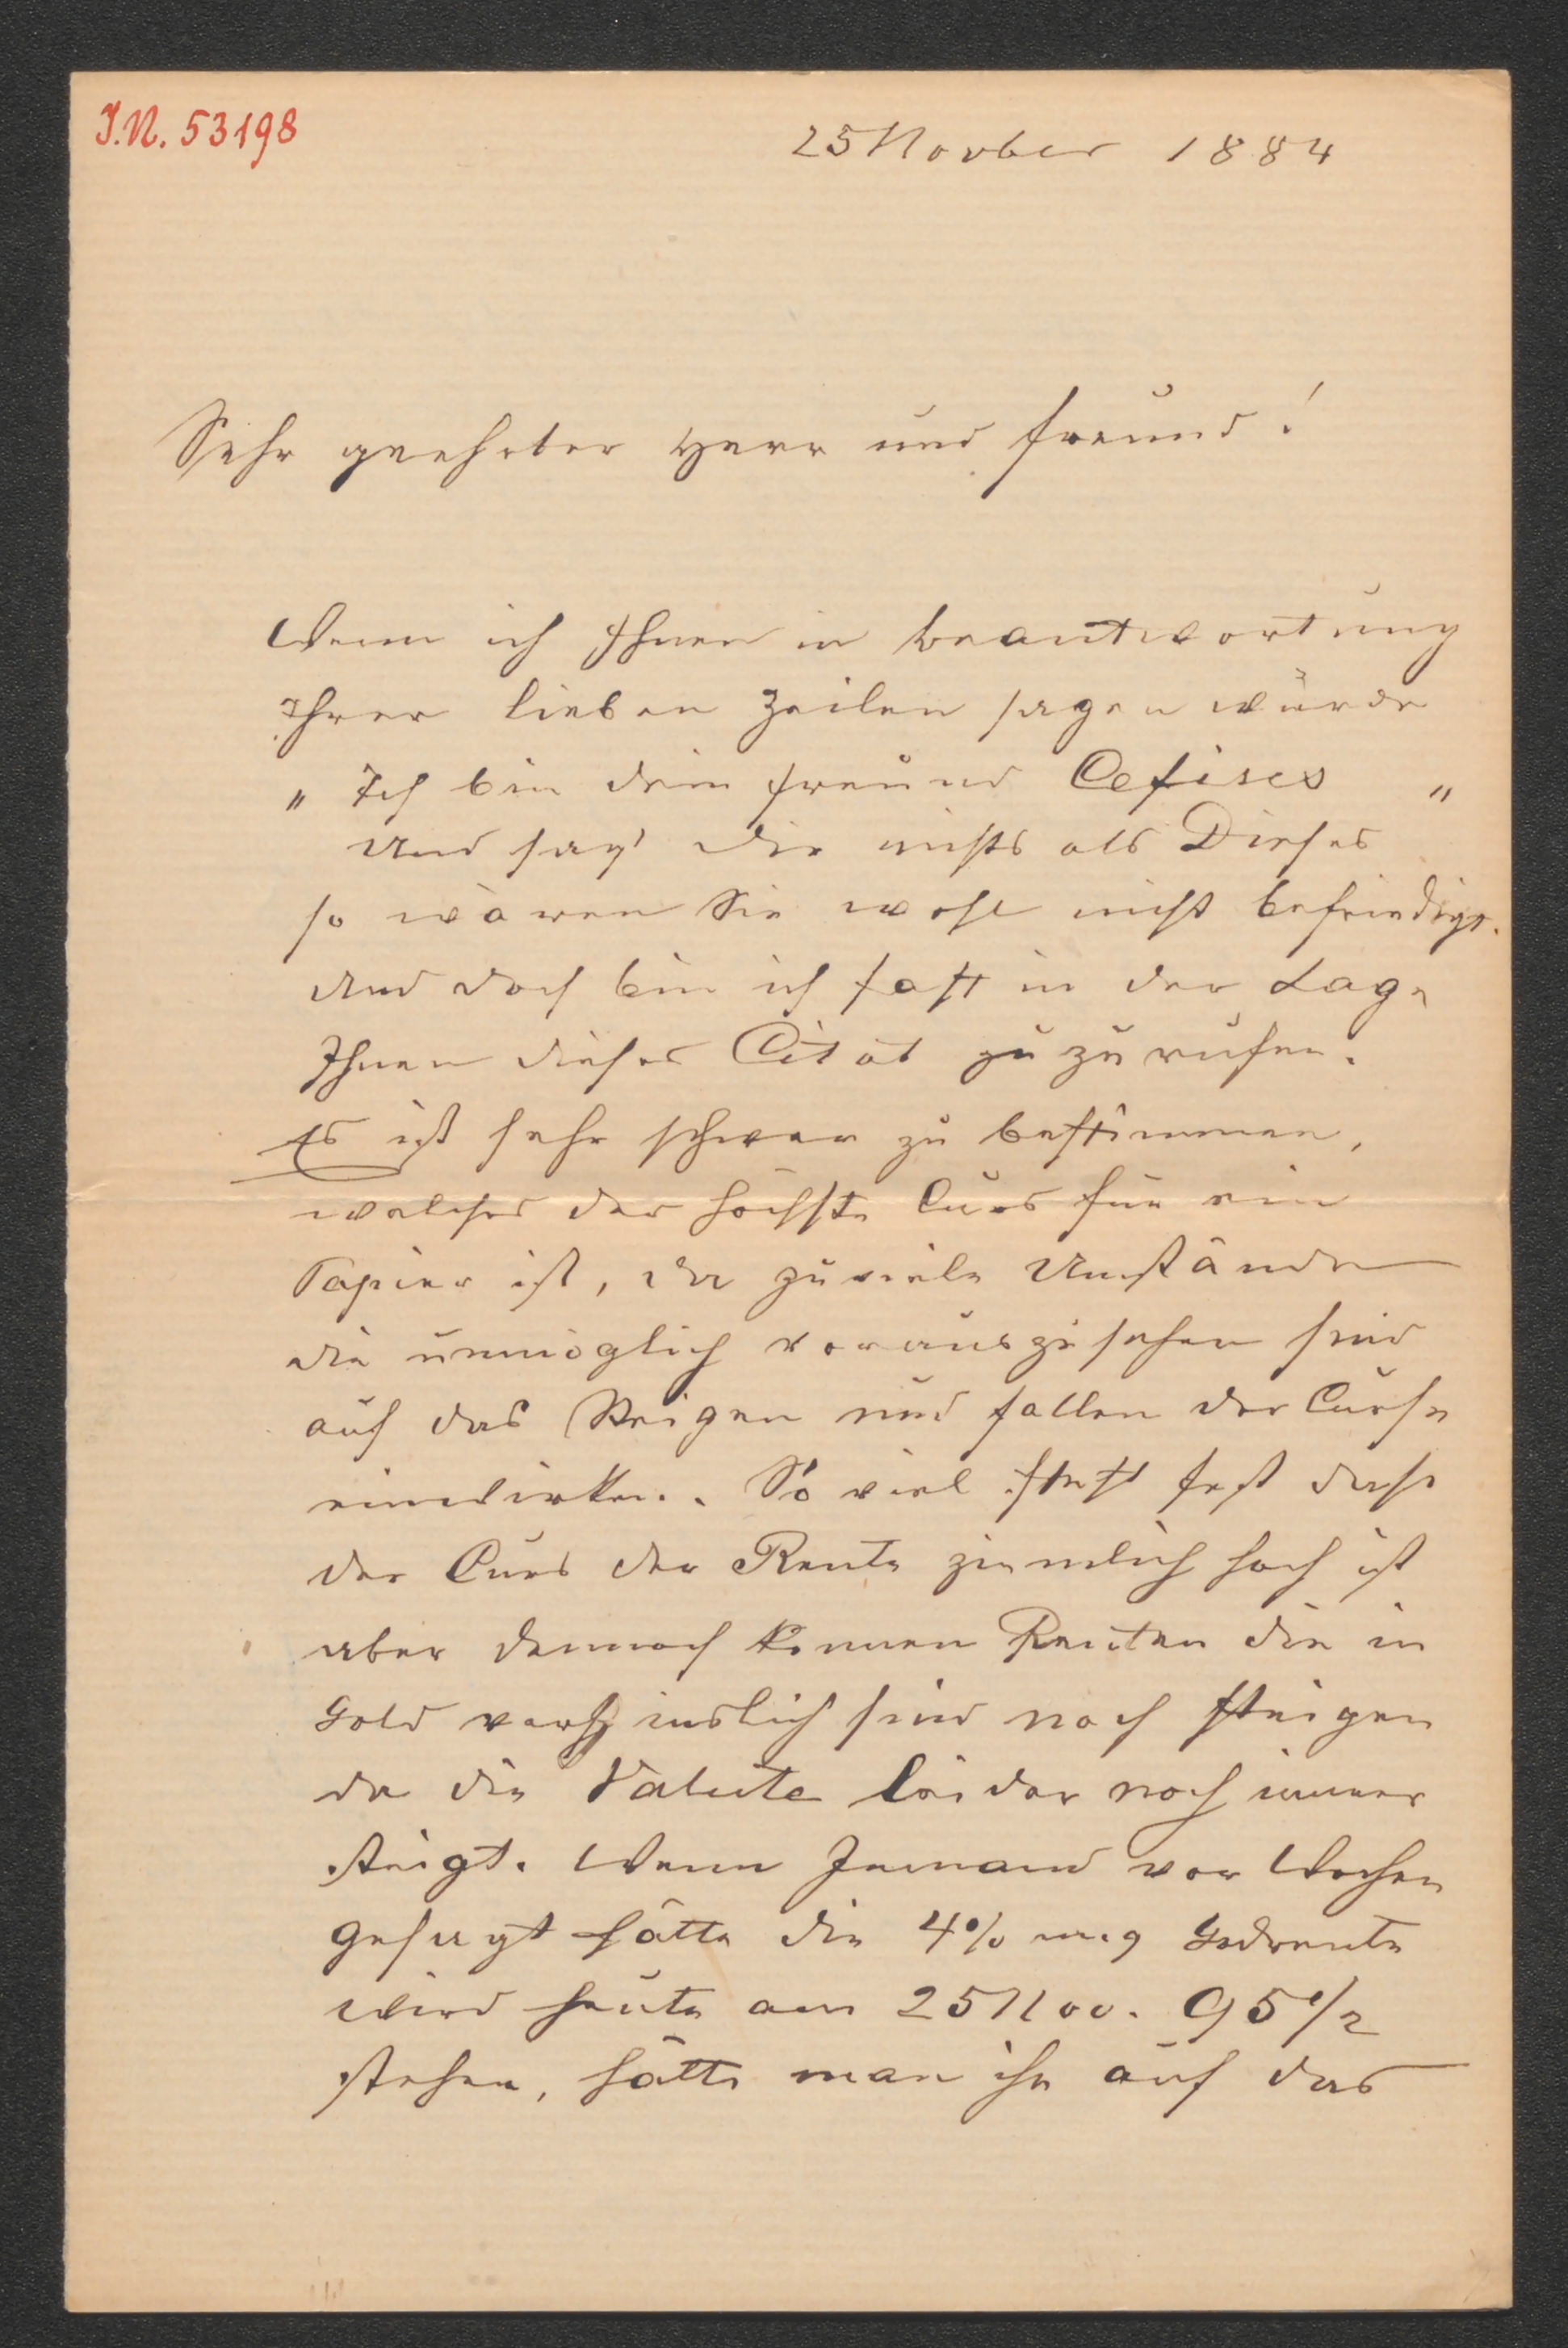 I.N. 53198
25 Novber 1884
Sehr geehrter Herr und Freund!
Wenn ich Ihnen in Beantwortung
Ihrer lieben Zeilen sagen würde
„ Ich bin dein Freund Cefises "
Und sag' dir nichts als Dieses
so wären Sie wohl nicht befriedigt.
Und doch bin ich fast in der Lage
Ihnen dieses Citat zu zu rufen.
Es ist sehr schwer zu bestimmen,
welches der höchste Curs für ein
Papier ist, da zu viele Umstände
die unmöglich vorauszusehen sind
auf das Steigen und Fallen der Curse
einwirken. So viel steht fest dass
der Curs der Rente ziemlich hoch ist
aber dennoch können Renten die in
Gold verzinslich sind noch steigen
da die Valuta leider noch immer
steigt. Wenn Jemand vor Wochen
gesagt hätte die 4% ung Goldrente
wird heute am 25 Nov. 95 1/2
stehen, hätte man ihn auf das